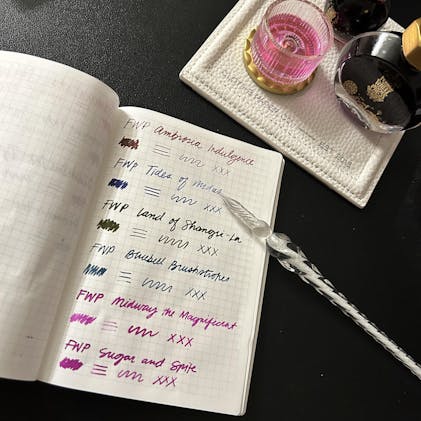 FWP Ambrosia Indulgence
XXX
FWP Tides of
XXX
FWP Land of Shangri-La
XXX
FWP Bluebell Brushstrokes
XXX
FWP Midway the Magnificent
XXX
FWP Sugar and Spite
XXX